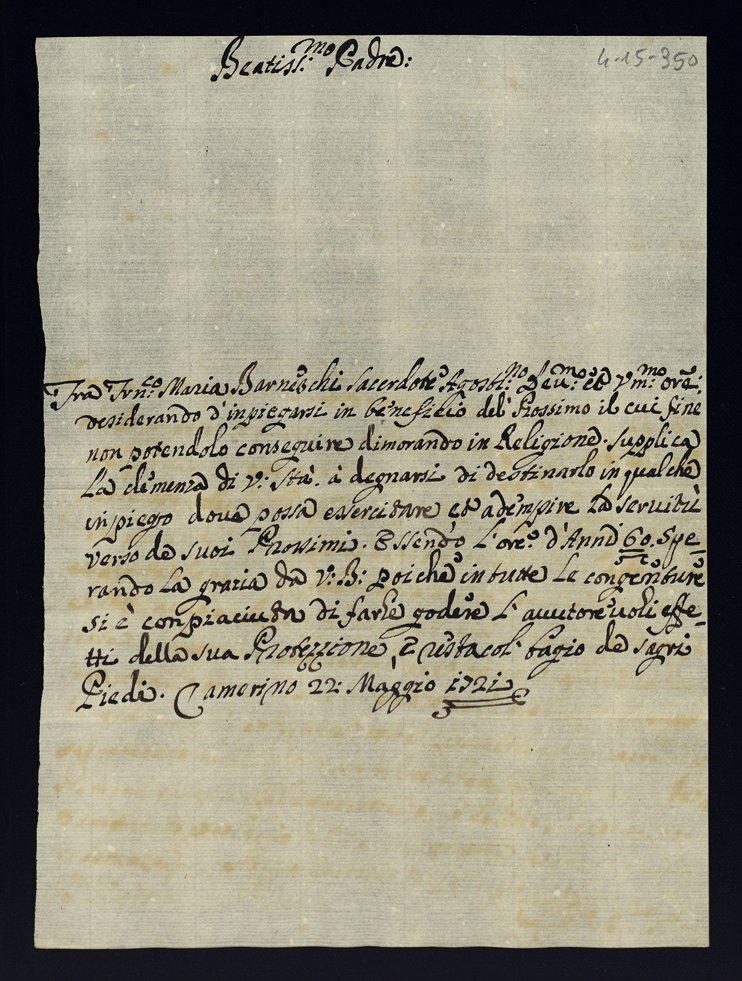 Beatiss:mo Padre:
4-15-350
Fra Frn:co Maria Barneschi Sacerdote Agosti:no Deu:mo et Vm:mo ore:
desiderando d'inpiegarsi in beneficio del' Prossimo il cui fine
non potendolo conseguire dimorando in Religione. supplica
La clemenza di V: Stà. à degnarsi di destinarlo in qualche
inpiego dove possa essercitare et adempire la servitù
verso de suoi Prossimi. Essendo L'ore: d'Anni 60. Spe-
rando La grazia da V: B: poiche in tutte Le congenture
si è conpiaciuta di farle godere L' auutoreuoli effe-
tti della sua Protezzione, E resta col' bagio de sagri
Piedi. Camerino 22: Maggio 1721